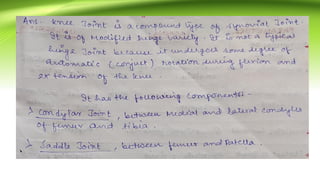 Ans. Knee Joint is a compound type of synovial Joint.
It is of Modified hinge variety. It is not a typical
hinge Joint because it undergoes some degree of
automatic (conjuct) rotation during flexion and
extension of the knee.
It has the following components:-
> Condylar Joint, between Medial and lateral condyles
of femur and tibia.
> Saddle Joint, between femur and Patella.